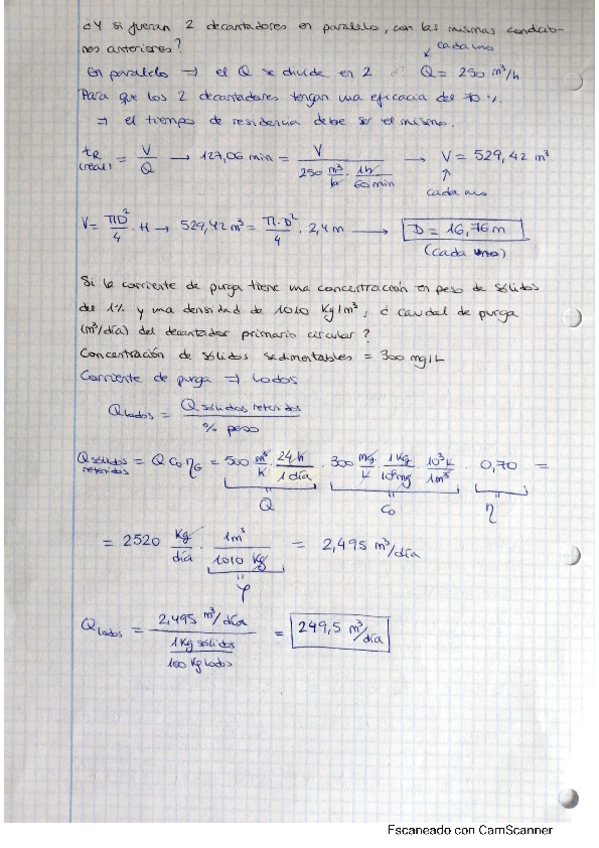 ¿Y si fueran 2 decantadores en paralelo, con las mismas condicio-
nes anteriores?
cada uno
En paralelo ⇒ el Q se divide en 2 Q = 250 m³/h
Para que los 2 decantadores tengan una eficacia del 70 %.
⇒ el tiempo de residencia debe ser el mismo.
tR (real) = V/Q → 127,06 min = V / (250 m³/h · 1h/60 min) → V = 529,42 m³
cada uno
V = ΠD²/4 · H → 529,42 m³ = Π·D²/4 · 2,4 m → D = 16,76 m
(cada uno)
Si la corriente de purga tiene una concentración en peso de sólidos
del 1% y una densidad de 1010 Kg/m³, ¿ caudal de purga
(m³/día) del decantador primario circular?
Concentración de sólidos sedimentables = 300 mg/L
Corriente de purga ⇒ lodos
Qlodos = Q sólidos retenidos / % peso
Q sólidos retenidos = Q C₀ ηG = 500 m³/h · 24 h/1 día · 300 mg/L · 1 Kg/10⁶ mg · 10³ L/1m³ · 0,70 =
Q C₀ η
= 2520 Kg/día · 1m³/1010 Kg = 2,495 m³/día
φ
Qlodos = 2,495 m³/día / (1 Kg sólidos / 100 Kg lodos) = 249,5 m³/día
Escaneado con CamScanner